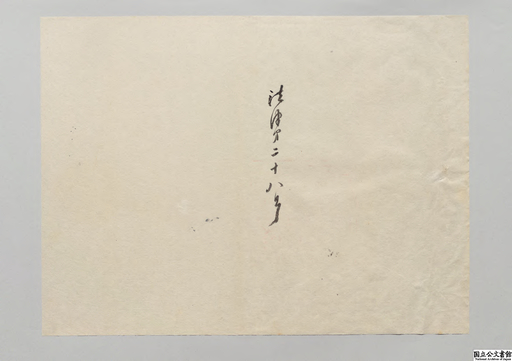 法律第二十八号
国立公文書館
National Archives of Japan